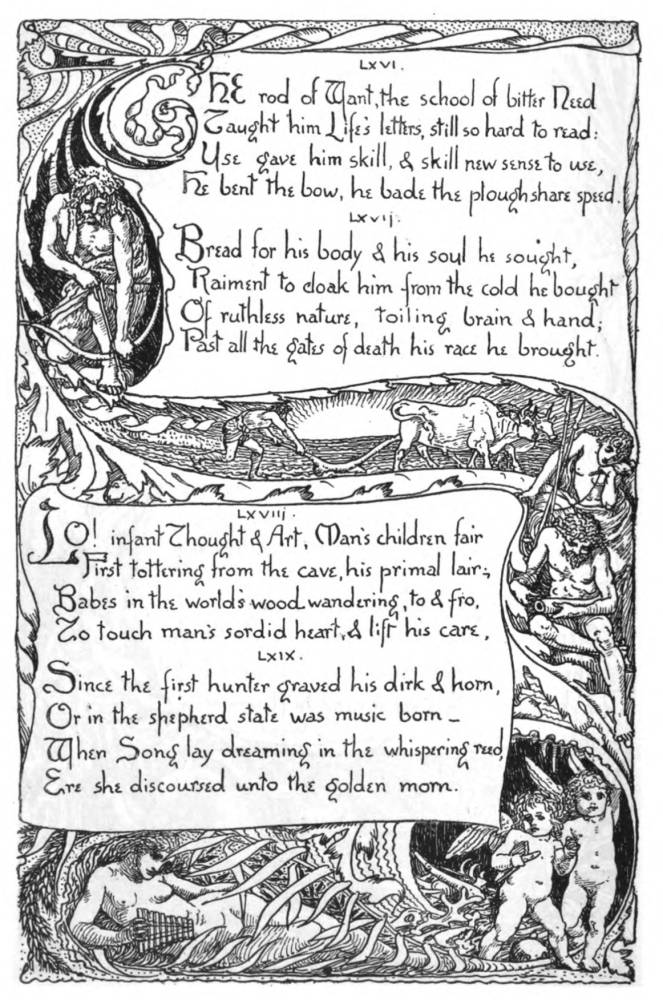 LXVI.
THE rod of Want, the school of bitter Need
Taught him Life's letters, still so hard to read:
Use gave him skill, & skill new sense to use,
He bent the bow, he bade the ploughshare speed.
LXVIJ.
Bread for his body & his soul he sought,
Raiment to cloak him from the cold he bought
Of ruthless nature, toiling brain & hand;
Past all the gates of death his race he brought.
LXVIIJ.
LO! infant Thought & Art, Man's children fair
First tottering from the cave, his primal lair;
Babes in the world's wood wandering, to & fro,
To touch man's sordid heart, & lift his care,
LXIX.
Since the first hunter graved his dirk & horn,
Or in the shepherd state was music born –
When Song lay dreaming in the whispering reed,
Ere she discoursed unto the golden morn.